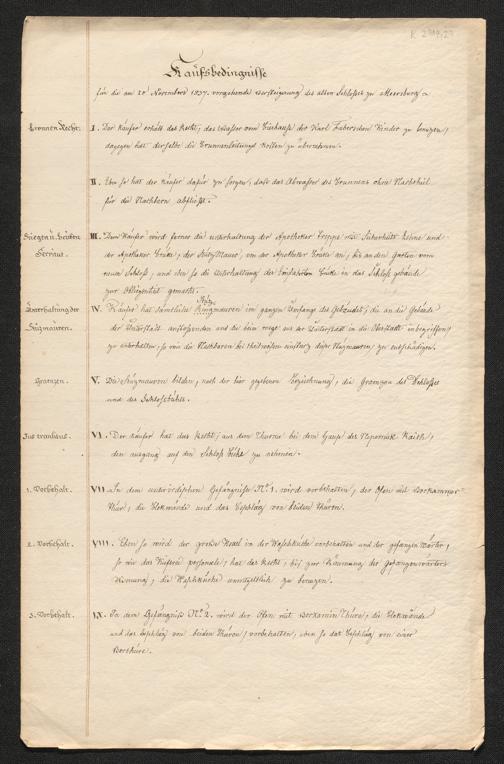 Kaufsbedingnisse
für die am 20' Novembers 1837. vorgehende Versteigerung des alten Schlosses zu Meersburg
Bronnen Recht: I. Der Käufer erhält das Recht, das Wasser vom der Karl Faberschen Kinder zu benuzen,
dagegen hat derselbe die Brunnenleitungs Kosten zu übernehmen.
II. Eben so hat der Käufer dafür zu sorgen, daß das Abwasser des Brunnens ohne Nachtheil
für die Nachbarn abfließt.
Stiegen u. Brüken III. Dem Käufer wird ferner die Unterhaltung der Apotheker Treppe und
der Apotheker Brüke, der Stüzmauer, von der Apotheker Brüke an, bis an den Garten vom
neuen Schloß, und eben so die Unterhaltung der Brüke in das Schloß gebäude
zur Obliegenheit gemacht.
Unterhaltung der IV. Käufer hat sämtliche Stüz
mauren im ganzen Umfange des Gebäudes, die an die Gebäude
Stüzmauren. der Unterstadt anstoßenden und die beim wege aus der Unterstadt in die Oberstadt inbegriffen,
zu unterhalten, so wie die Nachbaren bei theilweisem einsturz dieser Stüzmauren, zu entschädigen.
Graenzen. V. Die Stüzmauren bilden, nach der hier gegebenen Bezeichnung, die Graenzen des Schlosses
und des Schloßbühls.
VI. Der Käufer hat das Recht, aus dem Thurme bei dem Hause des Nepomuk
den ausgang auf den Schloß zu nehmen.
1. Vorbehalt. VII. In dem unterirdischen Gefängnisse No. 1. wird vorbehalten, der Ofen mit Vorkammer
Thür, die Blokwände und das Beschläg von beiden Thüren.
2. Vorbehalt. VIII. Eben so wird der große Kessel in der Waschküche vorbehalten und der gefangenwärter,
so wie das personale, hat das Recht, bis zur Räumung der gefangenwärters
Wonung, die Waschküche unentgeltlich zu benuzen.
3. Vorbehalt. IX. In dem Gefängniß No. 2. wird der Ofen mit Vorkamin Thüre, die Blokwände
und das Beschläg von beiden Thüren, vorbehalten, eben so das Beschläg von einer
Vorthüre.